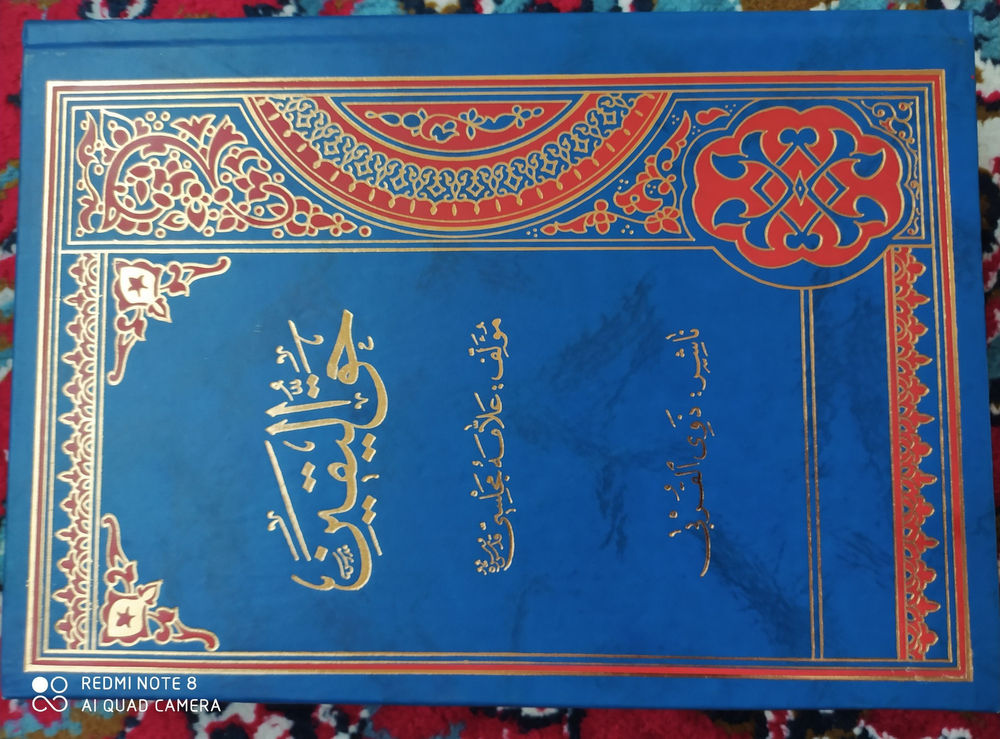 حَقُّ الْيَقِينِ
مُؤَلِّف: عَلَّامَهٔ مَجْلِسِی قدّس سرّه
نَاشِر: ذَوِی الْقُرْبَی
REDMI NOTE 8
AI QUAD CAMERA